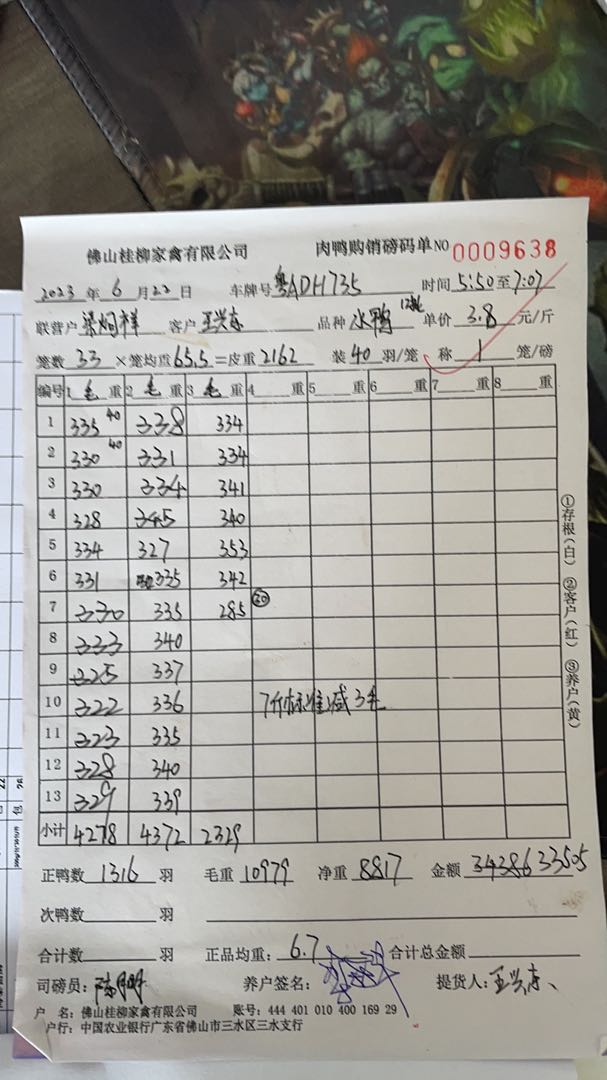 佛山桂柳家禽有限公司 肉鸭购销磅码单 NO 0009638
2023年6月22日 车牌号 粤ADH735 时间 5:50至7:07
联营户 梁炯祥 客户 王兴东 品种 水鸭 单价 3.8 元/斤
笼数 33 ×笼均重 65.5 =皮重 2162 装 40 羽/笼 称 1 笼/磅
编号 1 毛 重 2 毛 重 3 毛 重 4 重 5 重 6 重 7 重 8 重
1 335 40 338 334
2 330 40 331 334
3 330 334 341
4 328 345 340
5 334 327 353
6 331 335 342
7 330 335 285 20
8 333 340
9 325 337
10 322 336 7斤标准减3毛
11 323 335
12 328 340
13 329 339
小计 4278 4372 2329
①存根(白) ②客户(红) ③养户(黄)
正鸭数 1316 羽 毛重 10979 净重 8817 金额 33505
次鸭数 羽
合计数 羽 正品均重: 6.7 合计总金额
司磅员: 养户签名: 提货人: 王兴东
户 名: 佛山桂柳家禽有限公司 账号: 444 401 010 400 169 29
户行: 中国农业银行广东省佛山市三水区三水支行